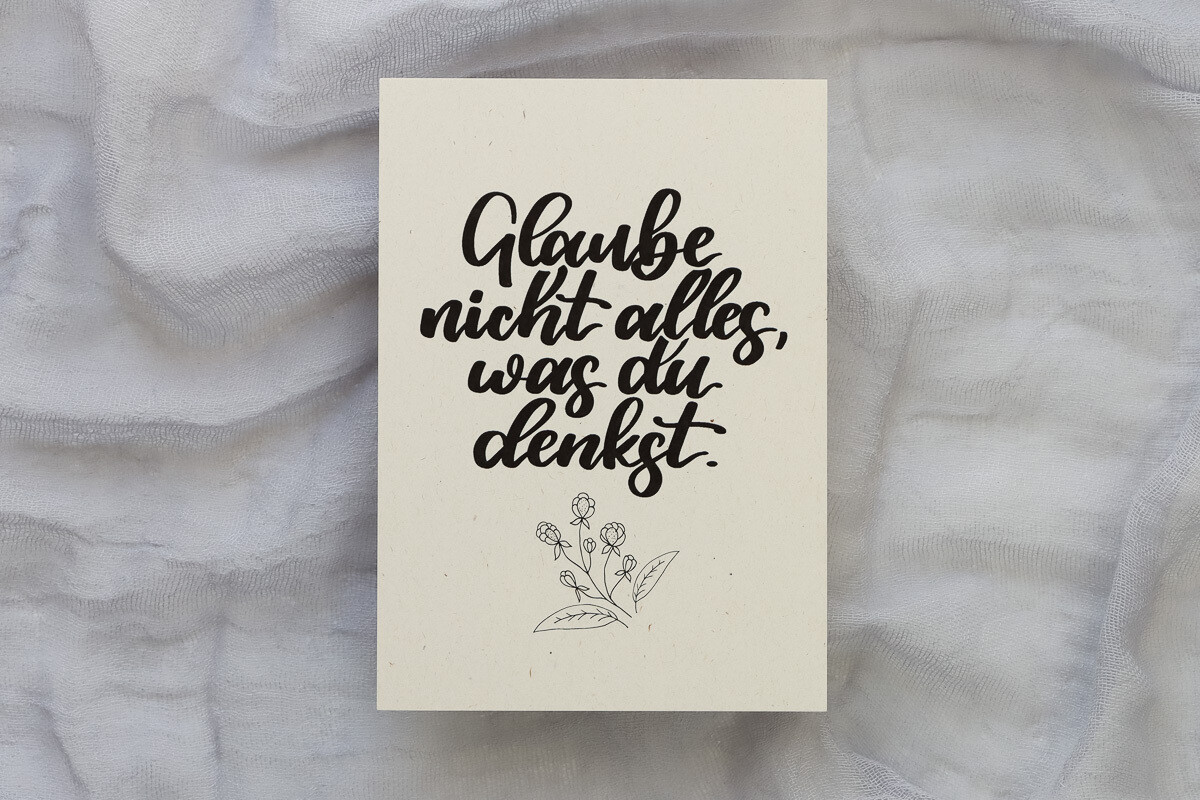 Glaube
nicht alles,
was du
denkst.